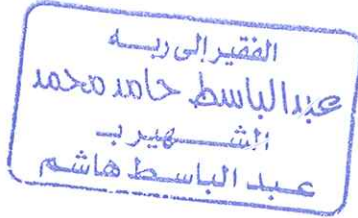 الفقير إلى ربه
عبدالباسط حامد محمد
الشهير ب
عبد الباسط هاشم